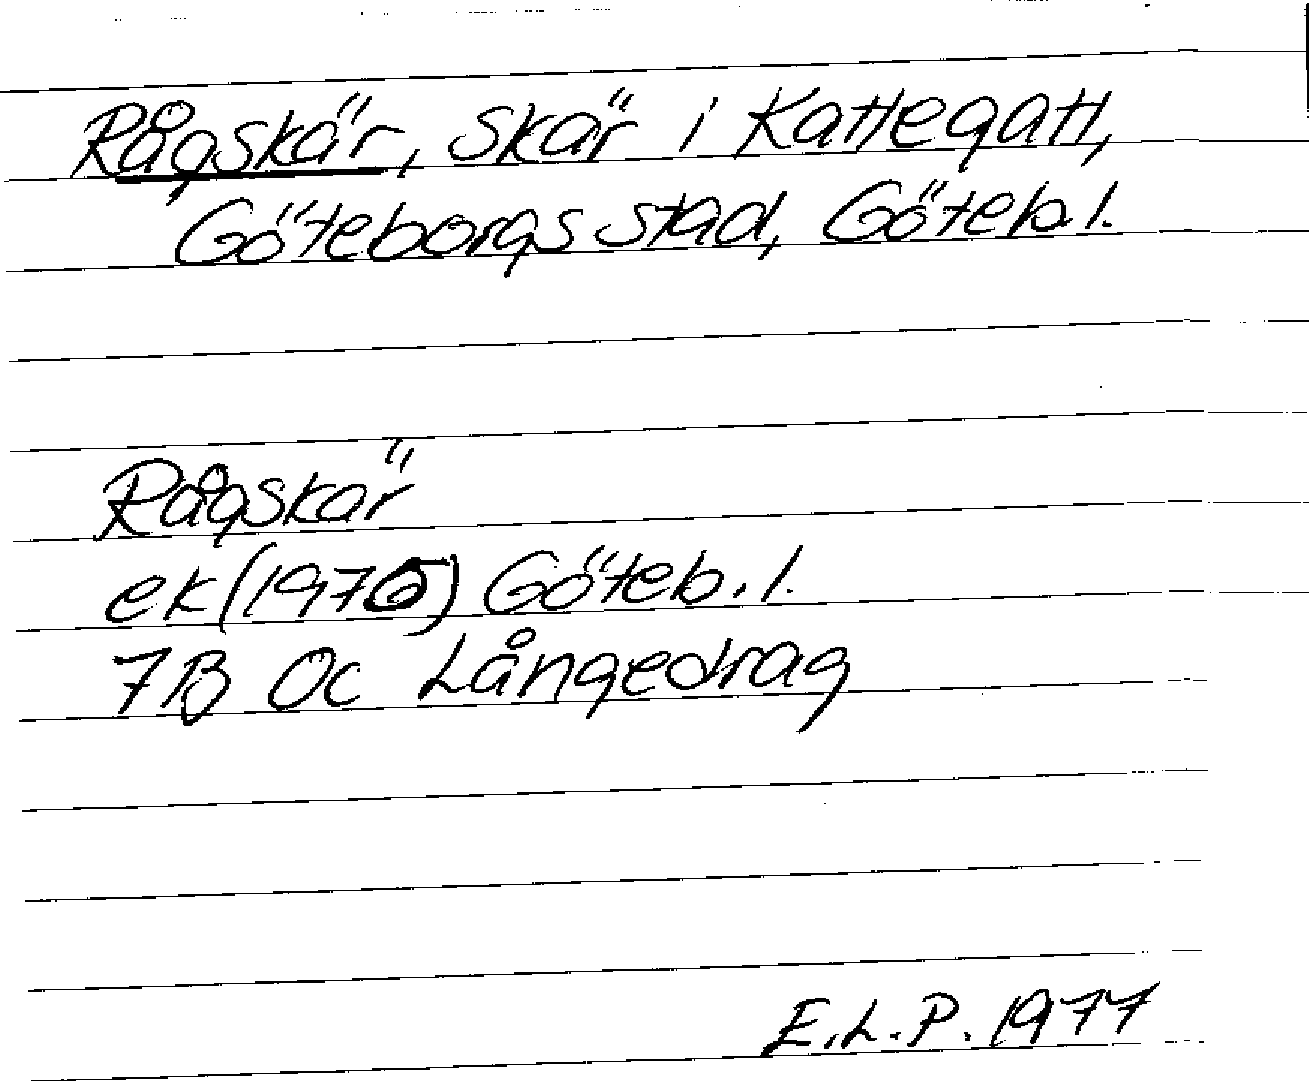 Rågskär, skär i Kattegatt,
Göteborgs stad, Göteb.l.
Rågskär
ek (1975) Göteb.l.
7B Oc Långedrag
E.L.P. 1977